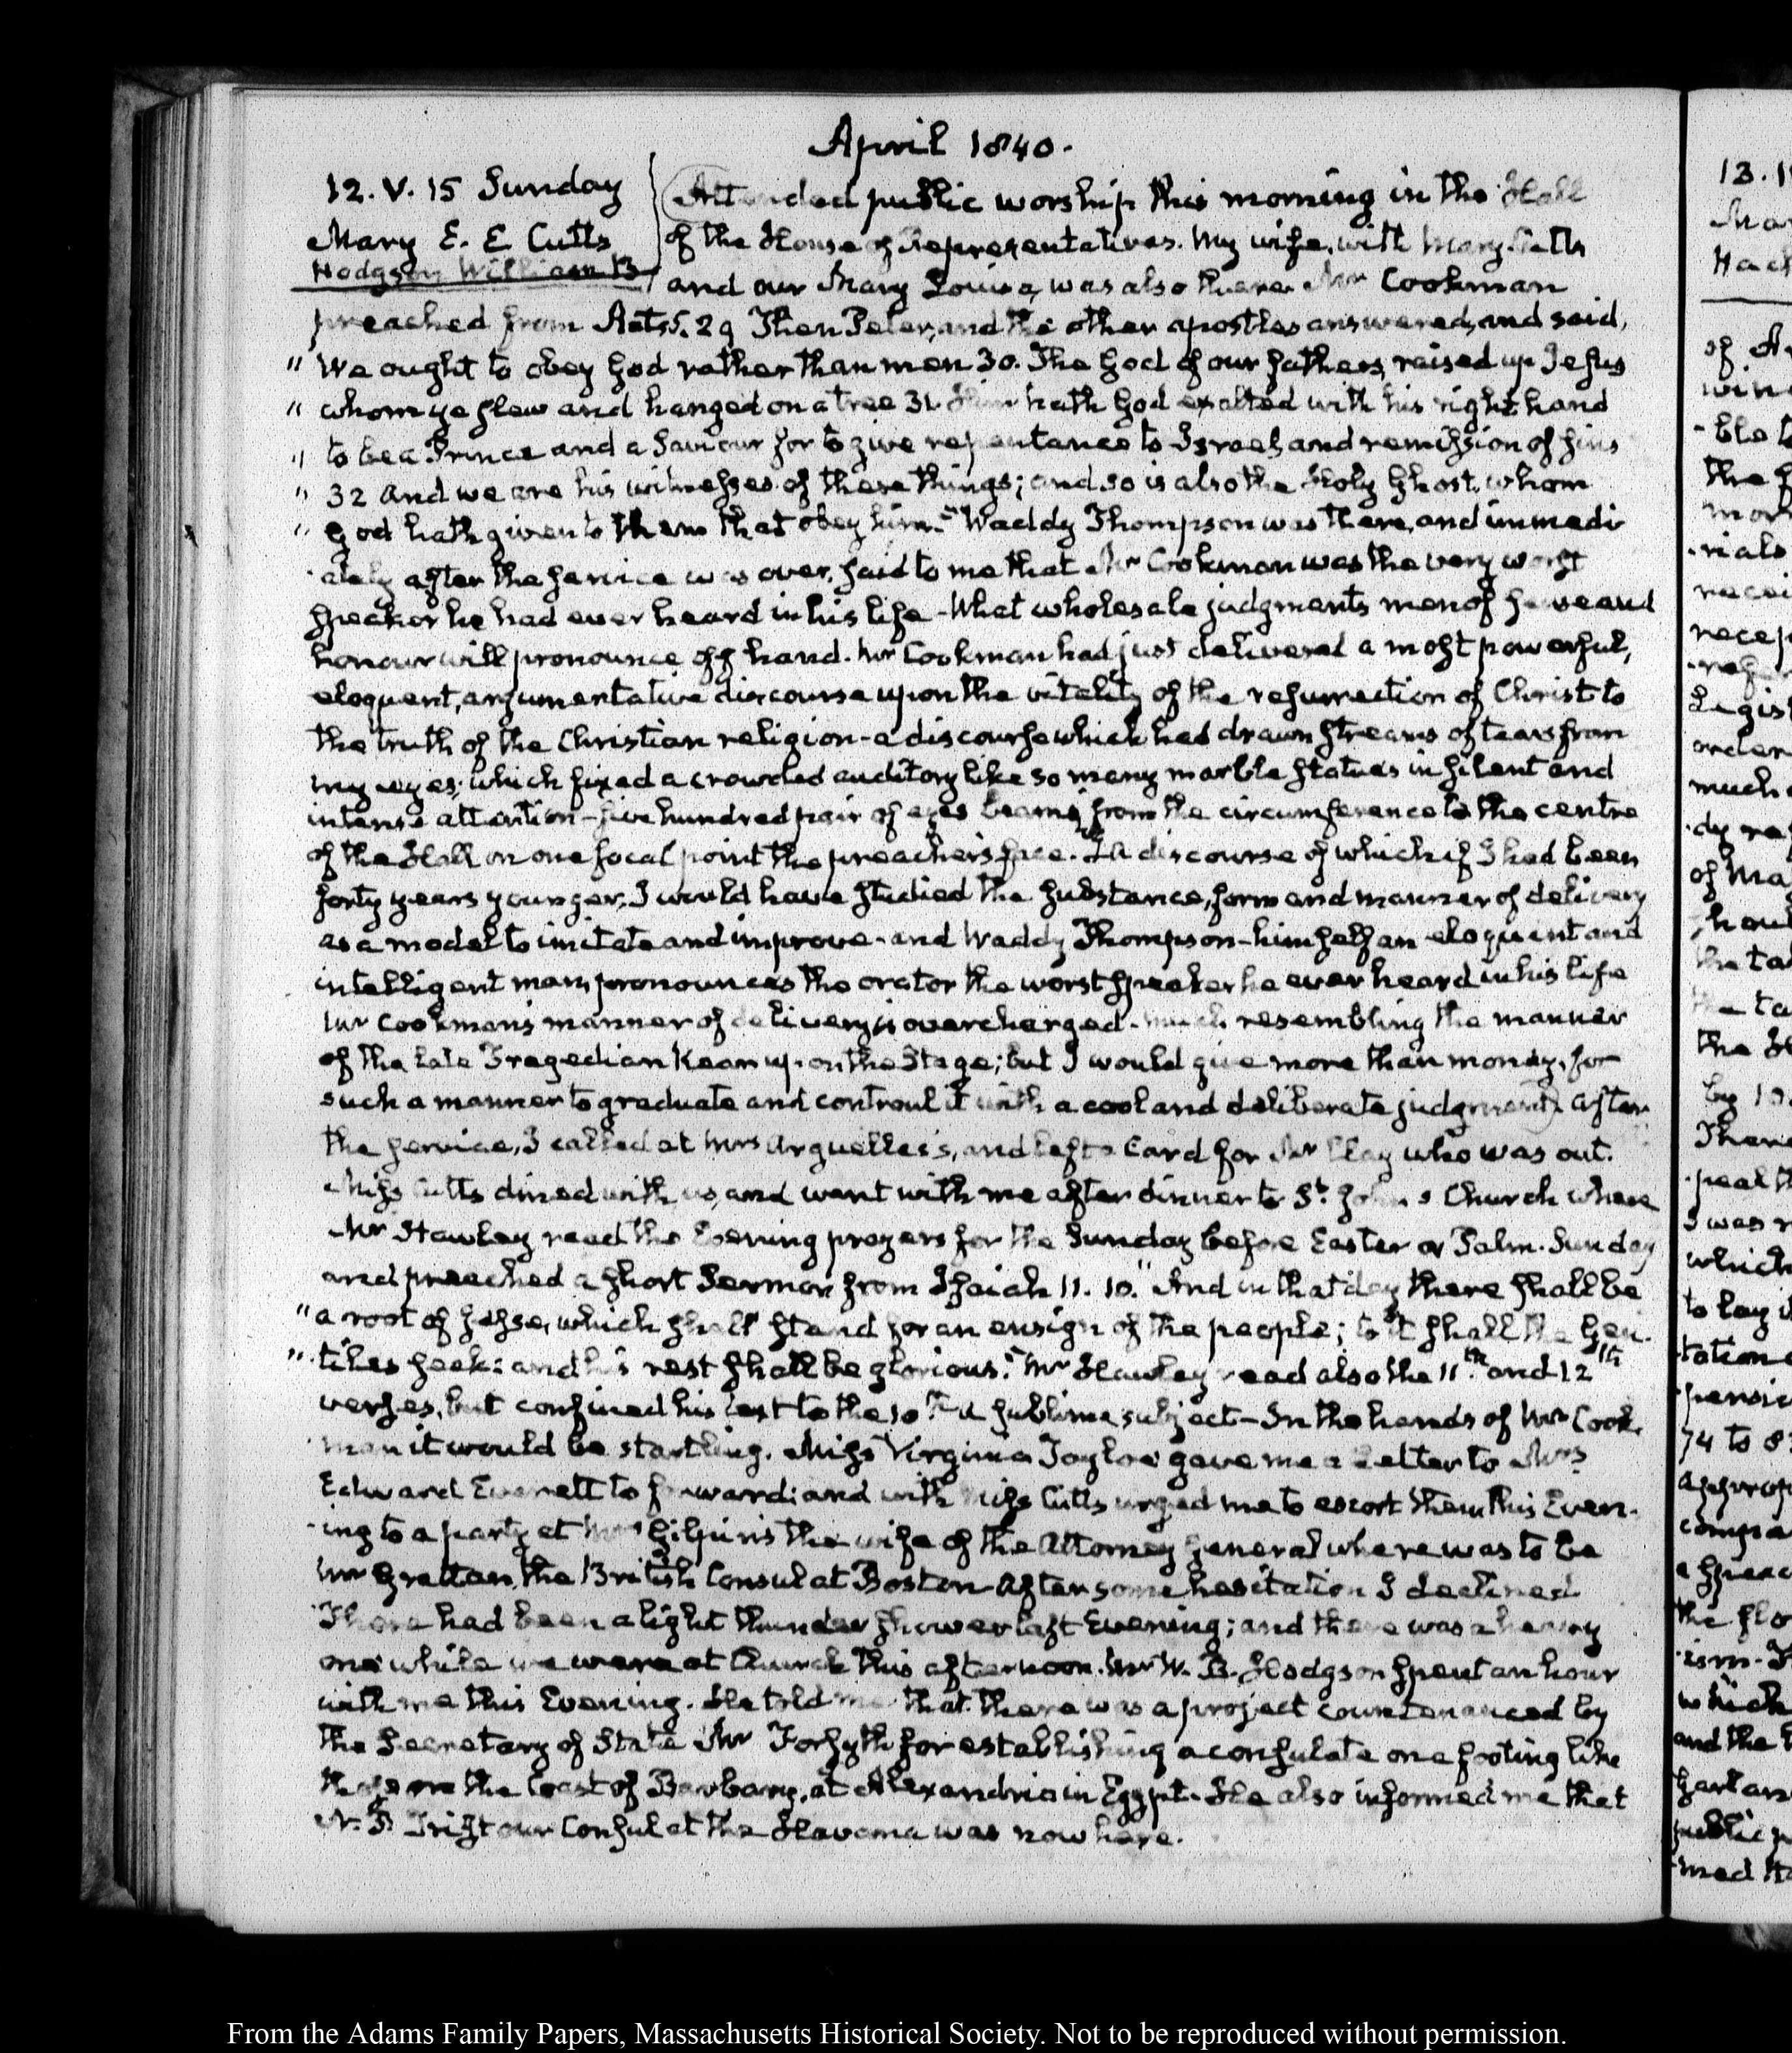 April 1840.
12. V. 15 Sunday
Mary E. E Cutts
Hodgson William B
Attended public worship this morning in the Hall
of the House of Representatives. My wife, with Mary Cutts
and our Mary Louisa, was also there. Mr Cookman
preached from Acts 5. 29 Then Peter, and the other apostles answered, and said,
" We ought to obey God rather than men 30. The God of our fathers, raised up Jesus
" whom ye slew and hanged on a tree 31. Him hath God exalted with his right hand
" to be a Prince and a Saviour for to give repentance to Israel, and remission of sins
" 32 And we are his witnesses of these things; and so is also the Holy Ghost, whom
" God hath given to them that obey him." Waddy Thompson was there, and immedi
-ately after the service was over, said to me that Mr Cookman was the very worst
speaker he had ever heard in his life - What wholesale judgments men of sense and
honour will pronounce off hand. Mr Cookman had just delivered a most powerful,
eloquent, argumentative discourse upon the vitality of the resurrection of Christ to
the truth of the Christian religion - a discourse which had drawn streams of tears from
my eyes; which fixed a crowded auditory like so many marble statues in silent and
intense attention - five hundred pair of eyes beaming from the circumference to the centre
of the Hall on one focal point the preacher's face. A discourse of which if I had been
forty years younger, I would have studied the substance, form and manner of delivery
as a model to imitate and improve - and Waddy Thompson - himself an eloquent and
intelligent man, pronounces the orator the worst speaker he ever heard in his life
Mr Cookman's manner of delivery is overcharged - much resembling the manner
of the late Tragedian Kean upon the Stage; but I would give more than money, for
such a manner to graduate and controul it with a cool and deliberate judgment. After
the service, I called at Mrs Arguelles's, and left a Card for Mr Clay who was out.
Miss Cutts dined with us, and went with me after dinner to St. John's Church where
Mr Hawley read the Evening prayers for the Sunday before Easter or Palm-Sunday
and preached a short Sermon from Isaiah 11. 10. "And in that day there shall be
" a root of Jesse, which shall stand for an ensign of the people; to it shall the Gen-
" -tiles seek: and his rest shall be glorious." Mr Hawley read also the 11th. and 12th
verses, but confined his text to the 10th. a sublime subject - In the hands of Mr Cook-
-man it would be startling. Miss Virginia Tayloe gave me a Letter to Mrs
Edward Everett to forward: and with Miss Cutts urged me to escort them this Even-
-ing to a party at Mrs Gilpin's the wife of the Attorney General where was to be
Mr Grattan, the British Consul at Boston After some hesitation I declined
There had been a light thunder shower last Evening; and there was a heavy
one while we were at Church this afternoon. Mr W. B. Hodgson spent an hour
with me this Evening. He told me that there was a project countenanced by
the Secretary of State Mr Forsyth for establishing a consulate one footing like
those on the Coast of Barbary, at Alexandria in Egypt. He also informed me that
N. P. Trist our Consul at the Havanna was now here.
13. 1
From the Adams Family Papers, Massachusetts Historical Society. Not to be reproduced without permission.